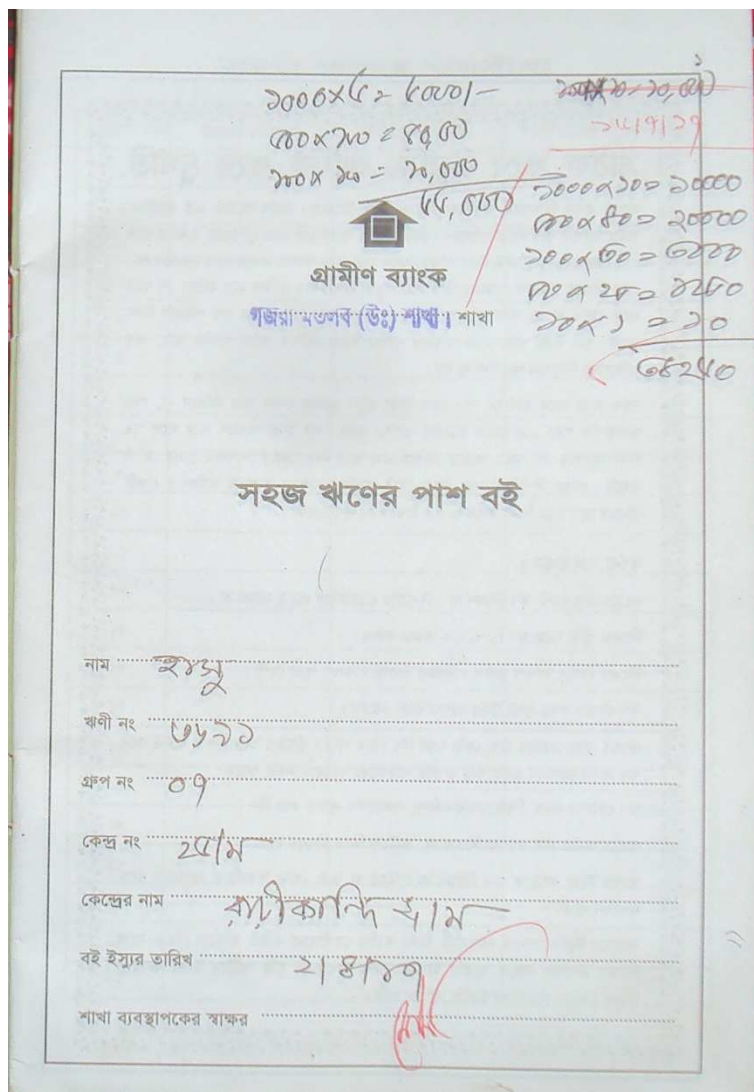 ১০০০x৫= ৫০০০/-
৫০০x৮০ = ৪০,০০০
১০০x ১০০ = ১০,০০০
৫৫,০০০
১০০০x১০= ১০০০০
৫০০x৪০= ২০০০০
১০০x৩০= ৩০০০
৫০x২৫= ১২৫০
১০x১ = ১০
৩৪২৬০
গ্রামীণ ব্যাংক
গজরা মতলব (উঃ) শাখা। শাখা
সহজ ঋণের পাশ বই
নাম হাসু
ঋণী নং ৩৮২১
গ্রুপ নং ০৭
কেন্দ্র নং ২৫/ম
কেন্দ্রের নাম
বই ইস্যুর তারিখ ২/৪/১৭
শাখা ব্যবস্থাপকের স্বাক্ষর